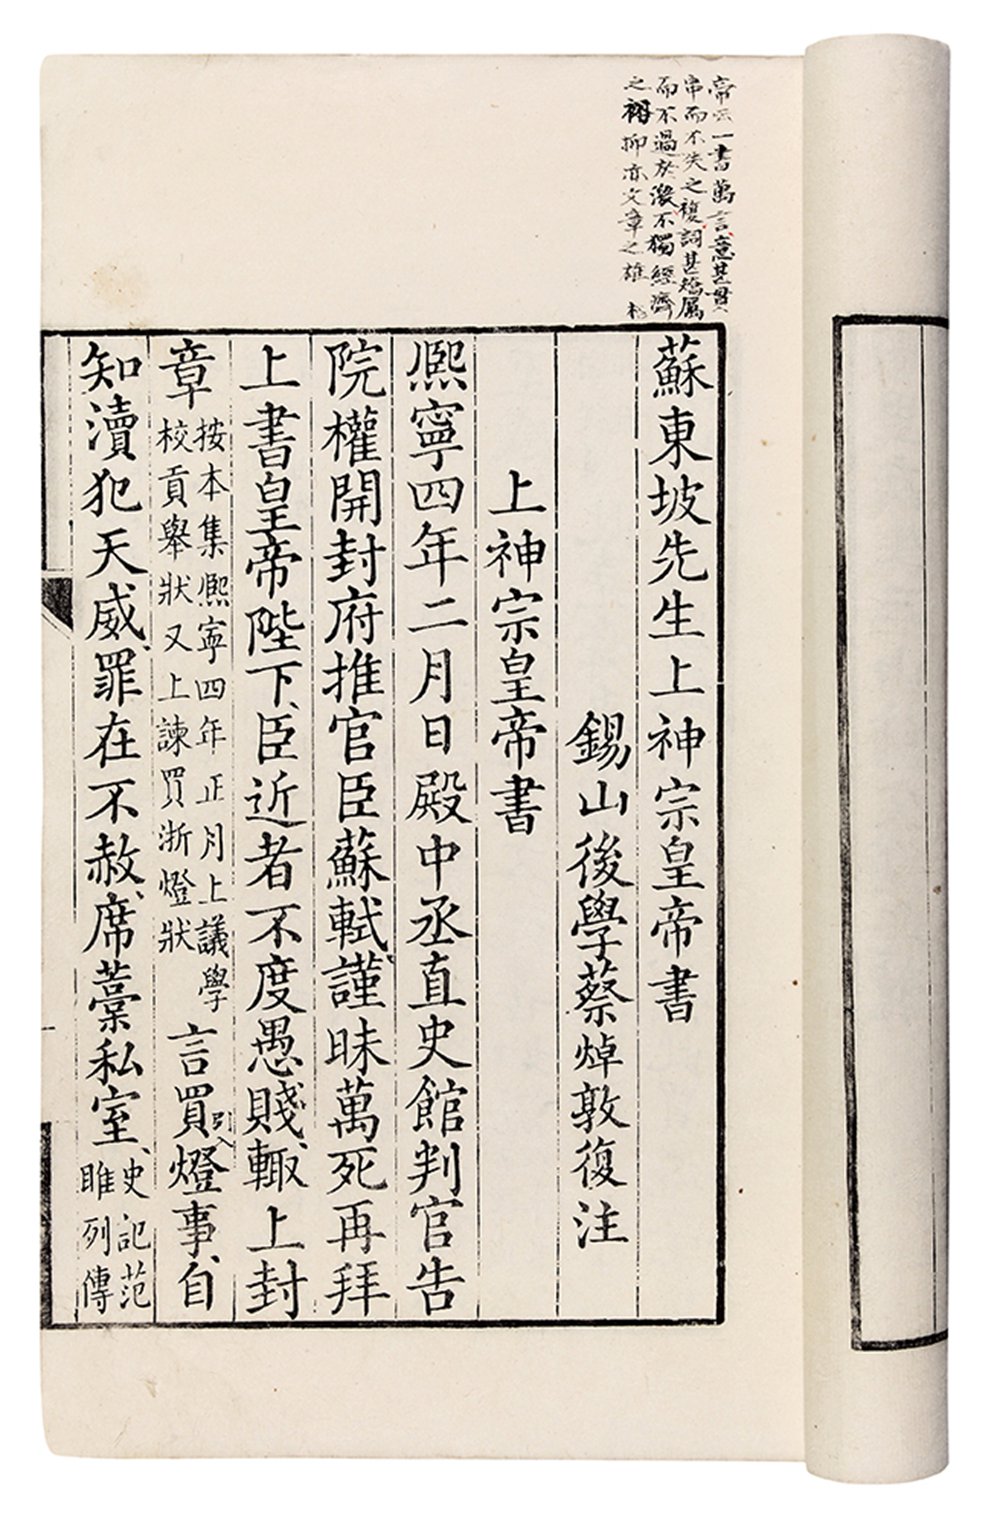 一書萬言意甚貫
串而不失之複詞甚厲
而不過於激不獨經濟
之抑亦文章之雄
蘇東坡先生上神宗皇帝書
錫山後學蔡焯敦復注
上神宗皇帝書
熙寧四年二月日殿中丞直史館判官告
院權開封府推官臣蘇軾、謹昧萬死再拜
上書皇帝陛下、臣近者不度愚賤、輙上封
章
按本集熙寧四年正月上議學
校貢舉狀又上諫買浙燈狀
言買燈事、自
引入
知瀆犯天威、罪在不赦、席藁私室、
史記范
雎列傳